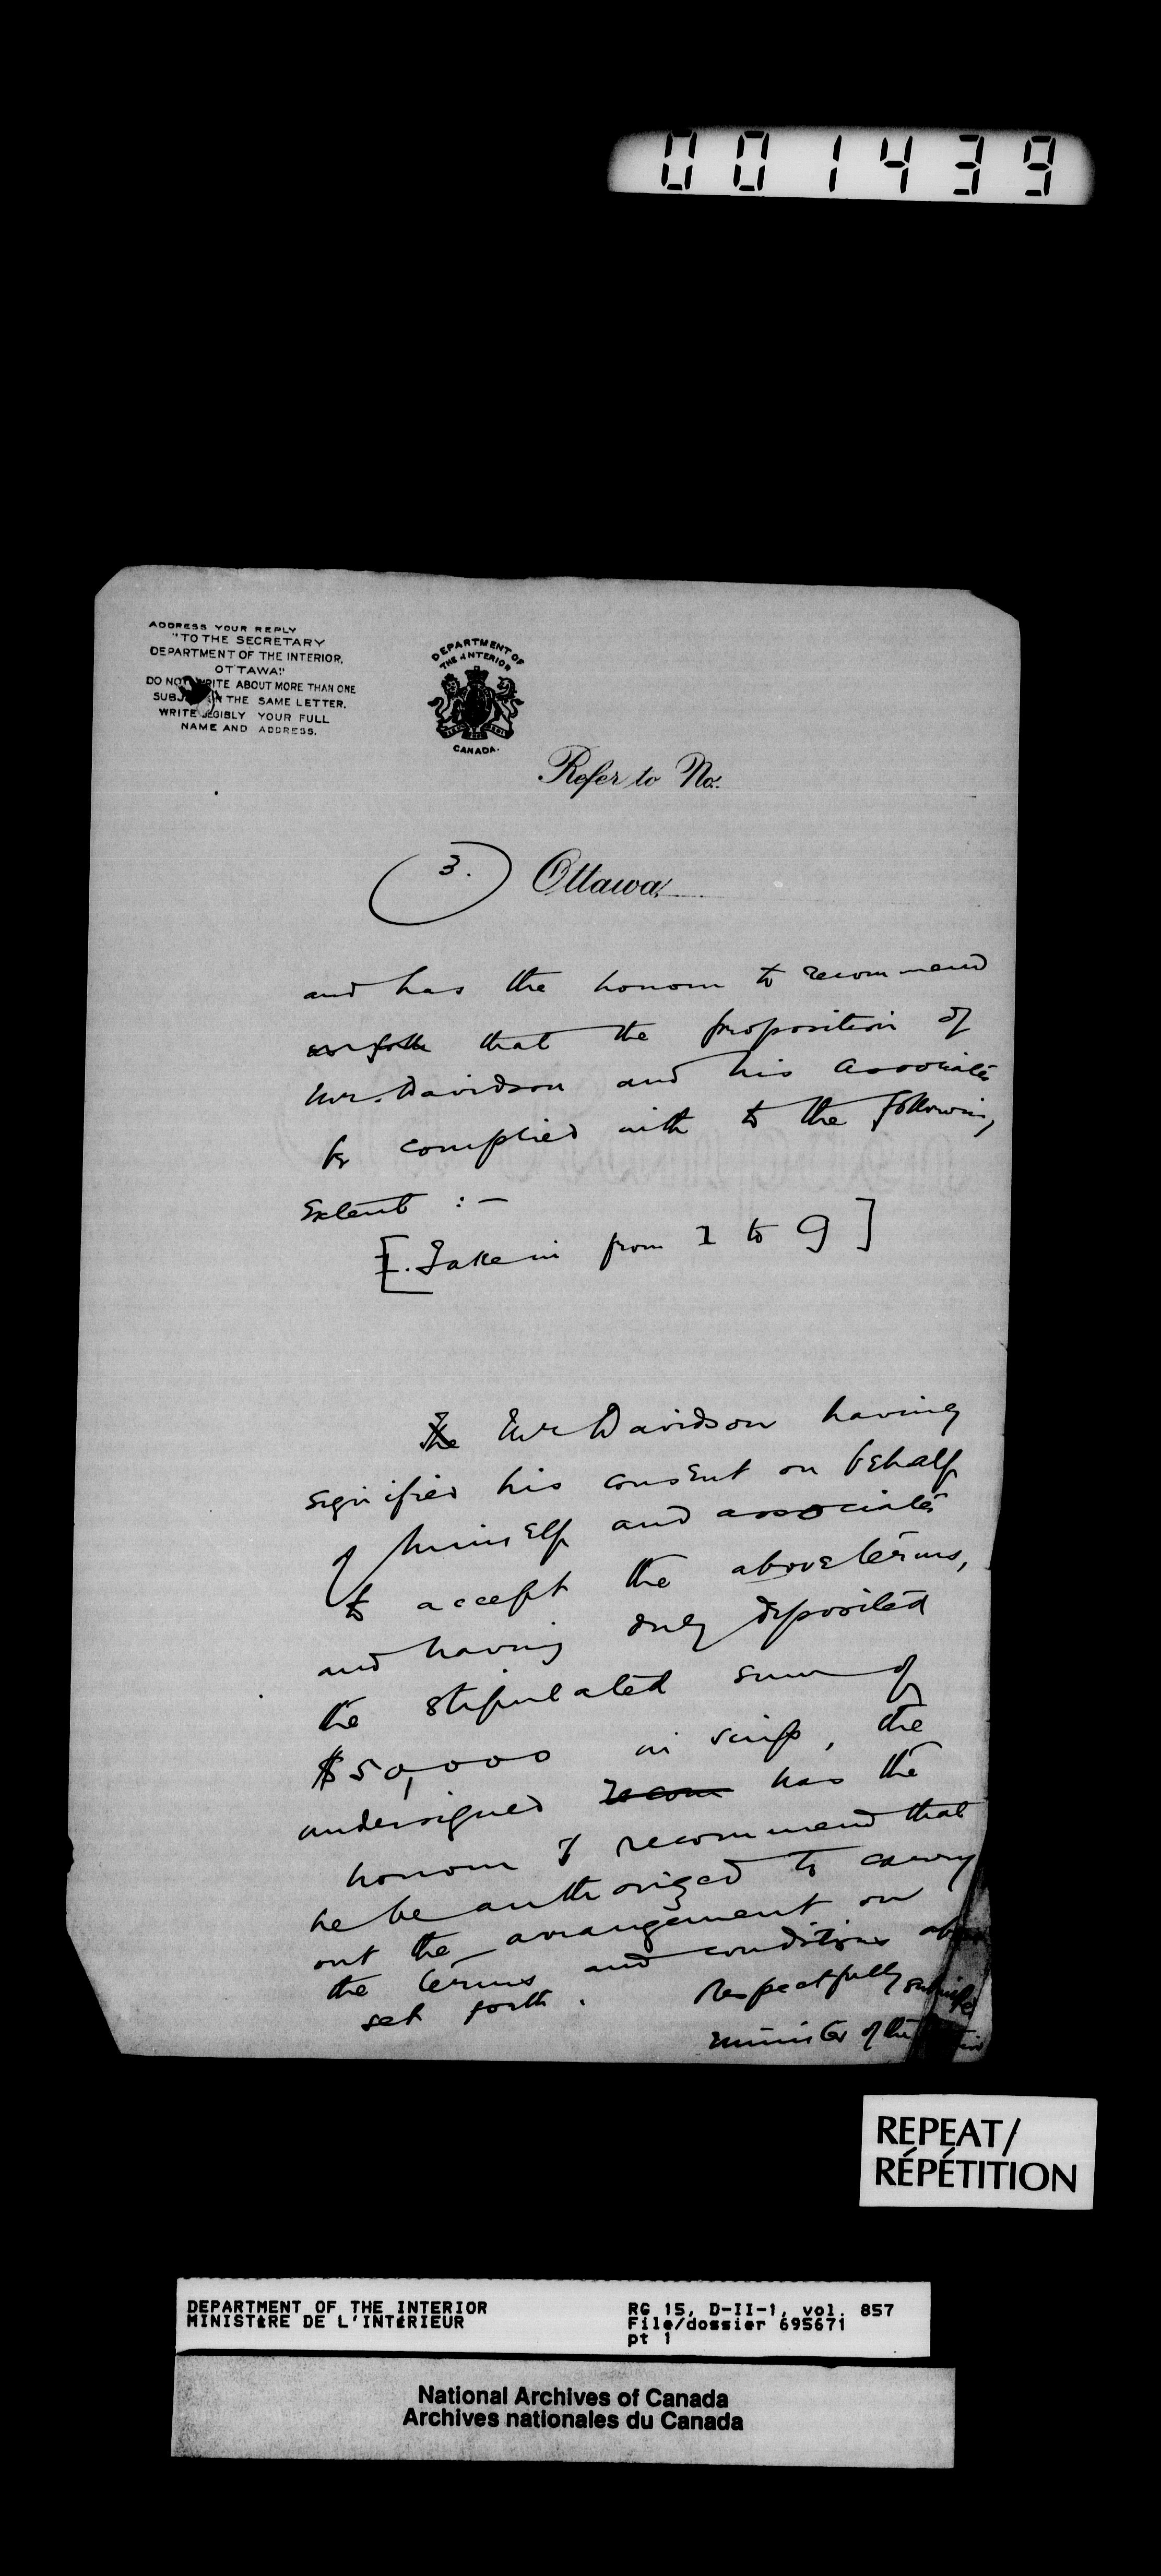 001439
ADDRESS YOUR REPLY
"TO THE SECRETARY
DEPARTMENT OF THE INTERIOR,
OTTAWA"
DO NOT WRITE ABOUT MORE THAN ONE
SUBJ IN THE SAME LETTER.
WRITE LEGIBLY YOUR FULL
NAME AND ADDRESS.
DEPARTMENT OF
THE INTERIOR
CANADA.
Refer to No.
3. Ottawa,
and has the honour to recommend
that the proposition of
Mr. Davidson and his associates
be complied with to the following
extent :-
[. Take in from 1 to 9 ]
The Mr Davidson having
signified his consent on behalf
of himself and associates
to accept the above terms,
and having duly deposited
the stipulated sum of
$50,000 in scrip, the
undersigned recom has the
honour to recommend that
he be authorized to carry
out the arrangement on
the terms and conditions above
set forth.
Respectfully
Minister of the
REPEAT/
RÉPÉTITION
DEPARTMENT OF THE INTERIOR
MINISTÈRE DE L'INTÉRIEUR
RG 15, D-II-1, vol. 857
File/dossier 695671
pt 1
National Archives of Canada
Archives nationales du Canada